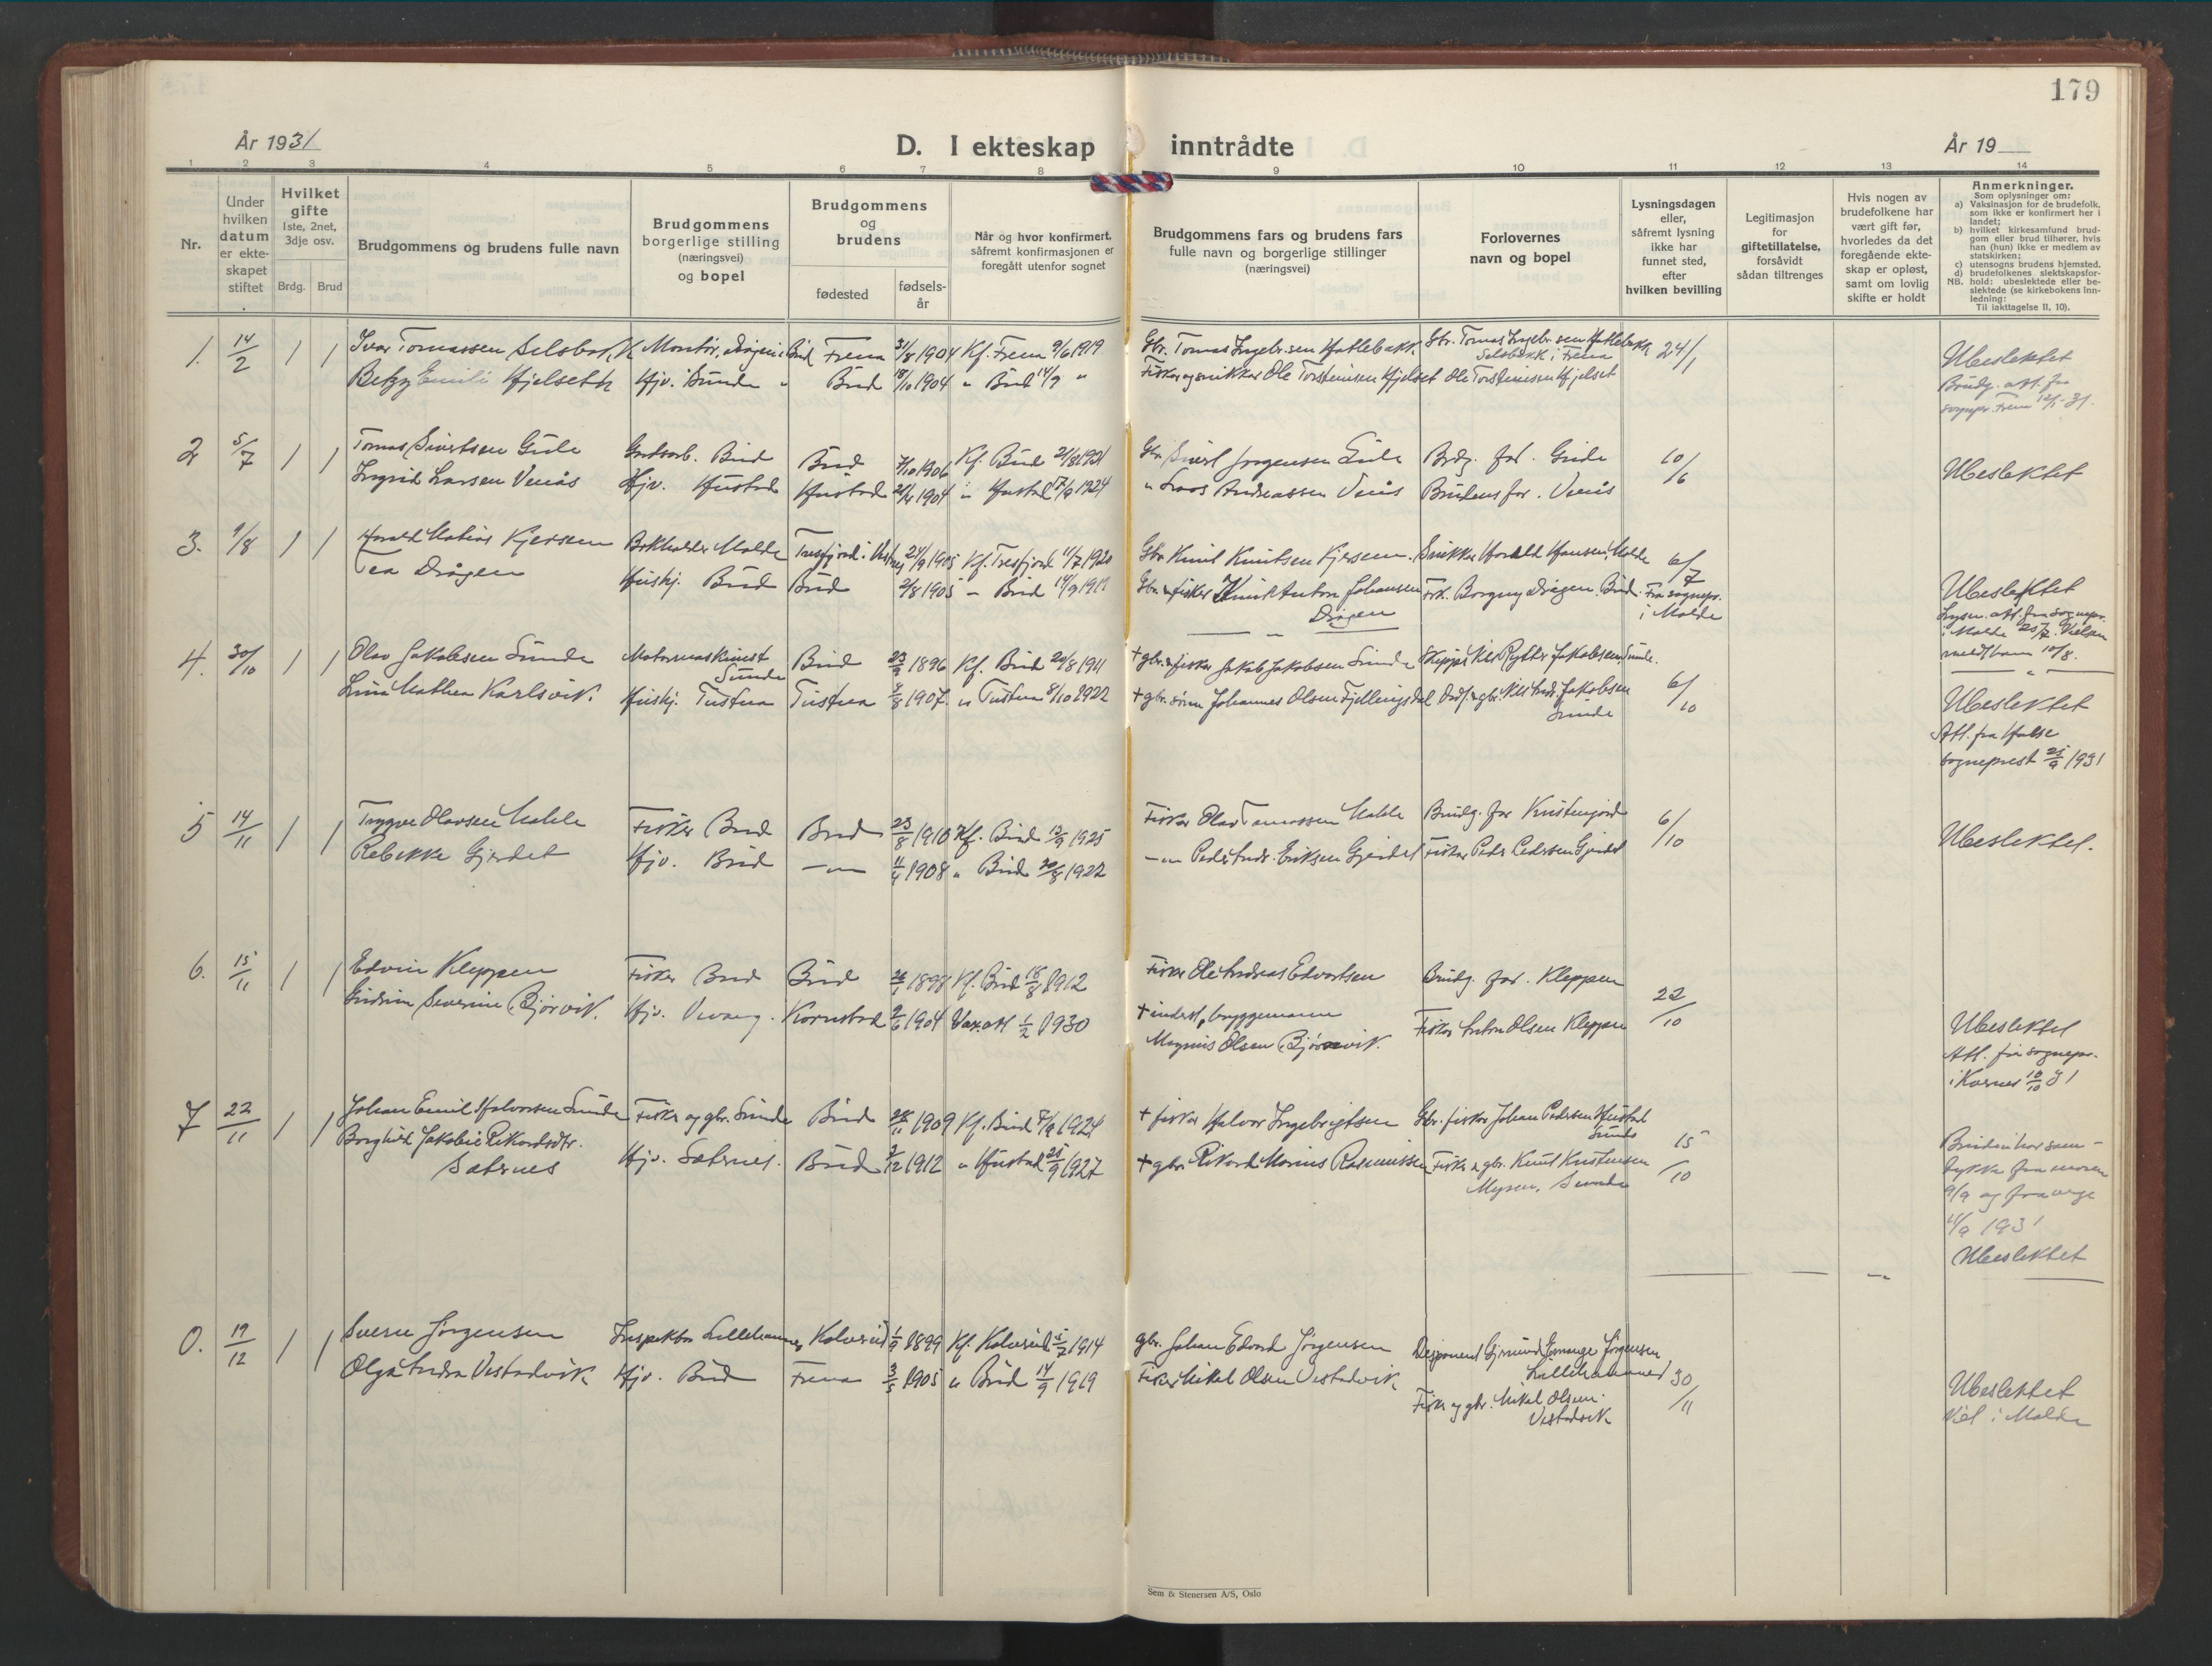 179
År 1931
D. I ekteskap inntrådte
År 19
1 2 3 4 5 6 7 8 9 10 11 12 13 14
Nr.
Under
hvilken
datum
er ekte-
skapet
stiftet
Hvilket
gifte
1ste, 2net,
3dje osv.
Brdg. Brud
Brudgommens og brudens fulle navn
Brudgommens
borgerlige stilling
(næringsvei)
og bopel
Brudgommens
og
brudens
fødested
fødsels-
år
Når og hvor konfirmert,
såfremt konfirmasjonen er
foregått utenfor sognet
Brudgommens fars og brudens fars
fulle navn og borgerlige stillinger
(næringsvei)
Forlovernes
navn og bopel
Lysningsdagen
eller,
såfremt lysning
ikke har
funnet sted,
efter
hvilken bevilling
Legitimasjon
for
giftetillatelse,
forsåvidt
sådan tiltrenges
Hvis nogen av
brudefolkene har
vært gift før,
hvorledes da det
foregående ekte-
skap er opløst,
samt om lovlig
skifte er holdt
Anmerkninger.
Som oplysninger om:
a) Vaksinasjon for de brudefolk,
som ikke er konfirmert her i
landet;
b) hvilket kirkesamfund brud-
gom eller brud tilhører, hvis
han (hun) ikke er medlem av
statskirken;
c) utensogns brudens hjemsted.
d) brudefolkenes slektskapsfor-
NB. hold: ubeslektede eller be-
slektede (se kirkebokens Inn-
ledning:
Til iakttagelse II, 10).
1. 14/2 1 1 Ivar Tomassen Montør, Frena 31/8 1904 Kf. Frena 9/6 1919 Gbr. Tomas Ingebr.sen Hatlebakk Gbr. Tomas Ingebr.sen Hatlebakk 24/1 Ubeslektet
Selsbakk i Frena
Betzy Emili Hjelseth Hjv. Sunde " Bud 18/10 1904 " Bud 14/9 " Fisker og snikker Ole Torsteinsen Hjelset Ole Torsteinsen Hjelset
Brudg. att. fra
sognepr. Frena 12/1-31.
2 5/7 1 1 Tomas Sivertsen Gule Bud Bud 7/10 1906 Kf. Bud 21/8 1921 Gbr. Sivert Jørgensen Gule Brdg. far. 10/6 Ubeslektet
Ingrid Larsen Venås Hjv. Hustad Hustad 1904 " Hustad 1924 " Lars Andreassen Venås Brudens far. Venås
3. 9/8 1 1 Harald Matias Kjersem Bokholder Molde Tresfjord i 24/9 1905 Kf. Tresfjord 11/7 1920 Gbr. Knut Knutsen Kjersem. Snikker Harald Hansen, Molde 6/7
Tea Drågen Hushj. Bud Bud 2/8 1905 " Bud 14/9 1919 Gbr. & fisker Knut Anton Johansen Frk. Borgny Drågen Bud. Fra sognepr.
Drågen i Molde
Ubeslektet
Lysn. att. fra sognepr.
i Molde 25/7.
10/8.
4. 30/10 1 1 Olav Jakobsen Sunde Motormaskinist Bud 23/9 1896 Kf. Bud 20/8 1911 + gbr. & fisker Jakob Jakobsen Sunde Jakobsen, Sunde.
Sunde
Mathea Karlsvik. Hushj. Tustna Tustna 1907 " Tustna 8/10 1922 + gbr. sønn Johannes Olsen Fjellingsdal & gbr. Jakobsen 6/10
Sunde
Ubeslektet
Att. fra Halse
sogneprest 25/9 1931
5 14/11 1 1 Trygve Olavsen Male Fisker Bud Bud 23/8 1910 Kf. Bud 13/9 1925 Fisker Olav Tomassen Male Brudg. far 6/10 Ubeslektet.
Rebekke Gjerdet Hjv. Bud 1908 " Bud 20/8 1922 Peder Andr. Eriksen Gjerdet Fisker Peder Pedersen Gjerdet
6. 15/11 1 1 Edvin Kleppen Fisker Bud Bud 26/1 1898 Kf. Bud 18/8 1912 Fisker Ole Andreas Edvartsen Brudg. far. Kleppen
Severine Bjørvik. Hjv. Kornstad 2/6 1904 Vax. att 1/2 1930 + inderst, bryggemann Fisker Anton Olsen Kleppen 22/10
Magnus Olsen Bjørvik.
Ubeslektet
Att. fra sognepr.
i Kvernes 10/10 31
7 22/11 1 1 Johan Emil Halvorsen Sunde Fisker og gbr. Sunde Bud 28/11 1909 Kf. Bud 7/9 1924 + fisker Halvor Ingebrigtsen Gbr. fisker Johan Pedersen Hustad
Sunde
Borghild Jakobie Rikardsdtr. Hjv. Sæternes. Bud 2/12 1912 " Hustad 25/9 1927 + gbr. Rikard Marius Rasmussen Fisker & gbr. Knut Kristensen 15/10
Sæternes Myren, Sunde
Bruden har sam-
tykke fra moren
9/9 og fra verge
11/9 1931
Ubeslektet
0. 19/12 1 1 Sverre Jørgensen Inspektør Lillehammer Kolvereid 1/9 1899 Kf. Kolvereid 5/7 1914 gbr. Johan Edvard Jørgensen Disponent Jørgensen
Lillehammer
Olga Indra Vestadvik Hjv. Bud Frena 3/5 1905 " Bud 14/9 1919 Fisker Mikal Olsen Vestadvik 30/11
Fisker og gbr. Mikal Olsen
Vestadvik
Ubeslektet
Viet i Molde
Sem & Stenersen A/S, Oslo